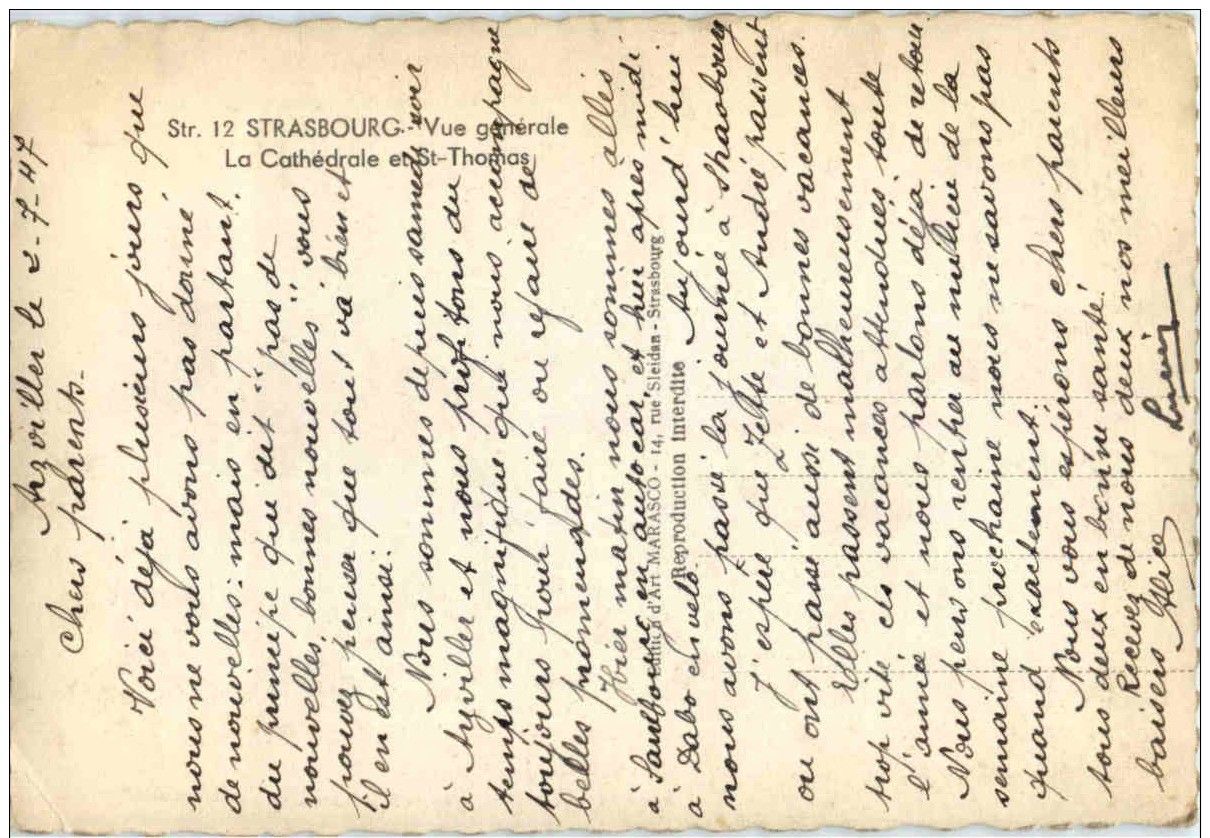 Str. 12 STRASBOURG - Vue générale
La Cathédrale et St-Thomas
Edition d'Art MARASCO - 14, rue Sleidan - Strasbourg
Reproduction Interdite
Arzviller le 2-7-47
Chers parents-
Voici déjà plusieurs jours que
nous ne vous avons pas donné
de nouvelles: mais en partant.
du principe qui dit "pas de
nouvelles, bonnes nouvelles" vous
pouvez penser que tout va bien et
il en est ainsi.
Nous sommes depuis samedi soir
à Arzviller et nous profitons du
temps magnifique qui nous accompagne
toujours pour faire ou refaire de
belles promenades.
Hier matin nous sommes allés
à Sarrebourg en autocar, et hier apres midi
à Dabo en vélo. Aujourd'hui
nous avons passé la journée à Strasbourg
J'espère que Zette et André passent
ou ont passé aussi de bonnes vacances.
Elles passent malheureusement
trop vite ces vacances attendues toute
l'année et nous parlons déjà de retour
Nous pensons rentrer au milieu de la
semaine prochaine nous ne savons pas
quand exactement
Nous vous espérons chers parents
tous deux en bonne santé.
Recevez de nous deux nos meilleurs
baisers Alice Lucien